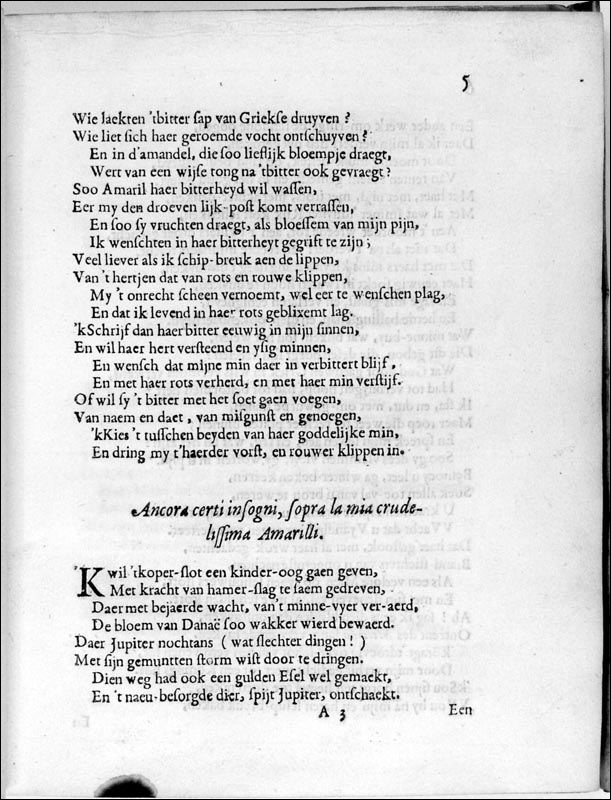 5
Wie laekten 'tbitter sap van Griekse druyven?
Wie liet sich haer geroemde vocht ontschuyven?
En in d'amandel, die soo lieflijk bloempje draegt,
Wert van een wijse tong na 'tbitter ook gevraegt?
Soo Amaril haer bitterheyd wil wassen,
Eer my den droeven lijk-post komt verrassen,
En soo sy vruchten draegt, als bloessem van mijn pijn,
Ik wenschten in haer bitterheyt gegrift te zijn;
Veel liever als ik schip-breuk aen de lippen,
Van 't hertjen dat van rots en rouwe klippen,
My 't onrecht scheen vernoemt, wel eer te wenschen plag,
En dat ik levend in haer rots geblixemt lag.
'kSchrijf dan haer bitter eeuwig in mijn sinnen,
En wil haer hert versteend en ysig minnen,
En wensch dat mijne min daer in verbittert blijf,
En met haer rots verherd, en met haer min verstijf.
Of wil sy 't bitter met het soet gaen voegen,
Van naem en daet, van misgunst en genoegen,
'kKies 't tusschen beyden van haer goddelijke min,
En dring my t'haerder vorst, en rouwer klippen in.
Ancora certi insogni, sopra la mia crude-
lissima Amarilli.
'K wil 'tkoper-slot een kinder-oog gaen geven,
Met kracht van hamer-slag te saem gedreven,
Daer met bejaerde wacht, van't minne-vyer ver-aerd,
De bloem van Danaë soo wakker wierd bewaerd.
Daer Jupiter nochtans (wat slechter dingen!)
Met sijn gemuntten storm wist door te dringen.
Dien weg had ook een gulden Esel wel gemaekt,
En 't naeu-besorgde dier, spijt Jupiter, ontschaekt.
A 3 Een